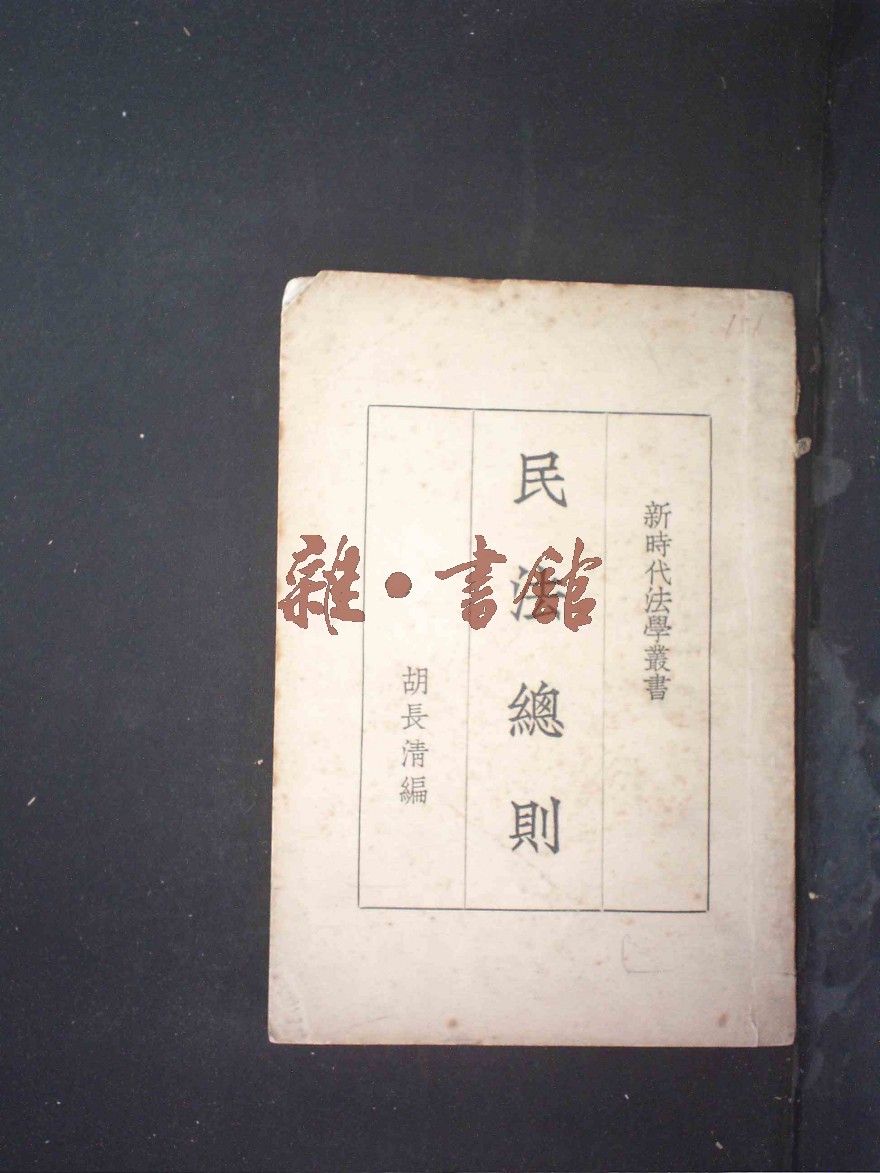 151
新時代法學叢書
民法總則
胡長清編
雜·書館